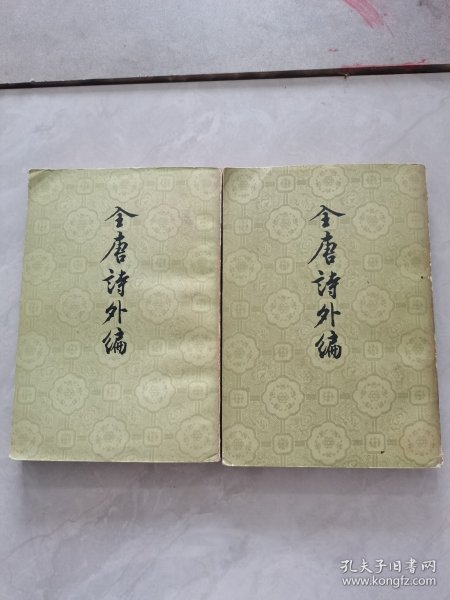 全唐詩外編
全唐詩外編
孔夫子旧书网
www.kongfz.com